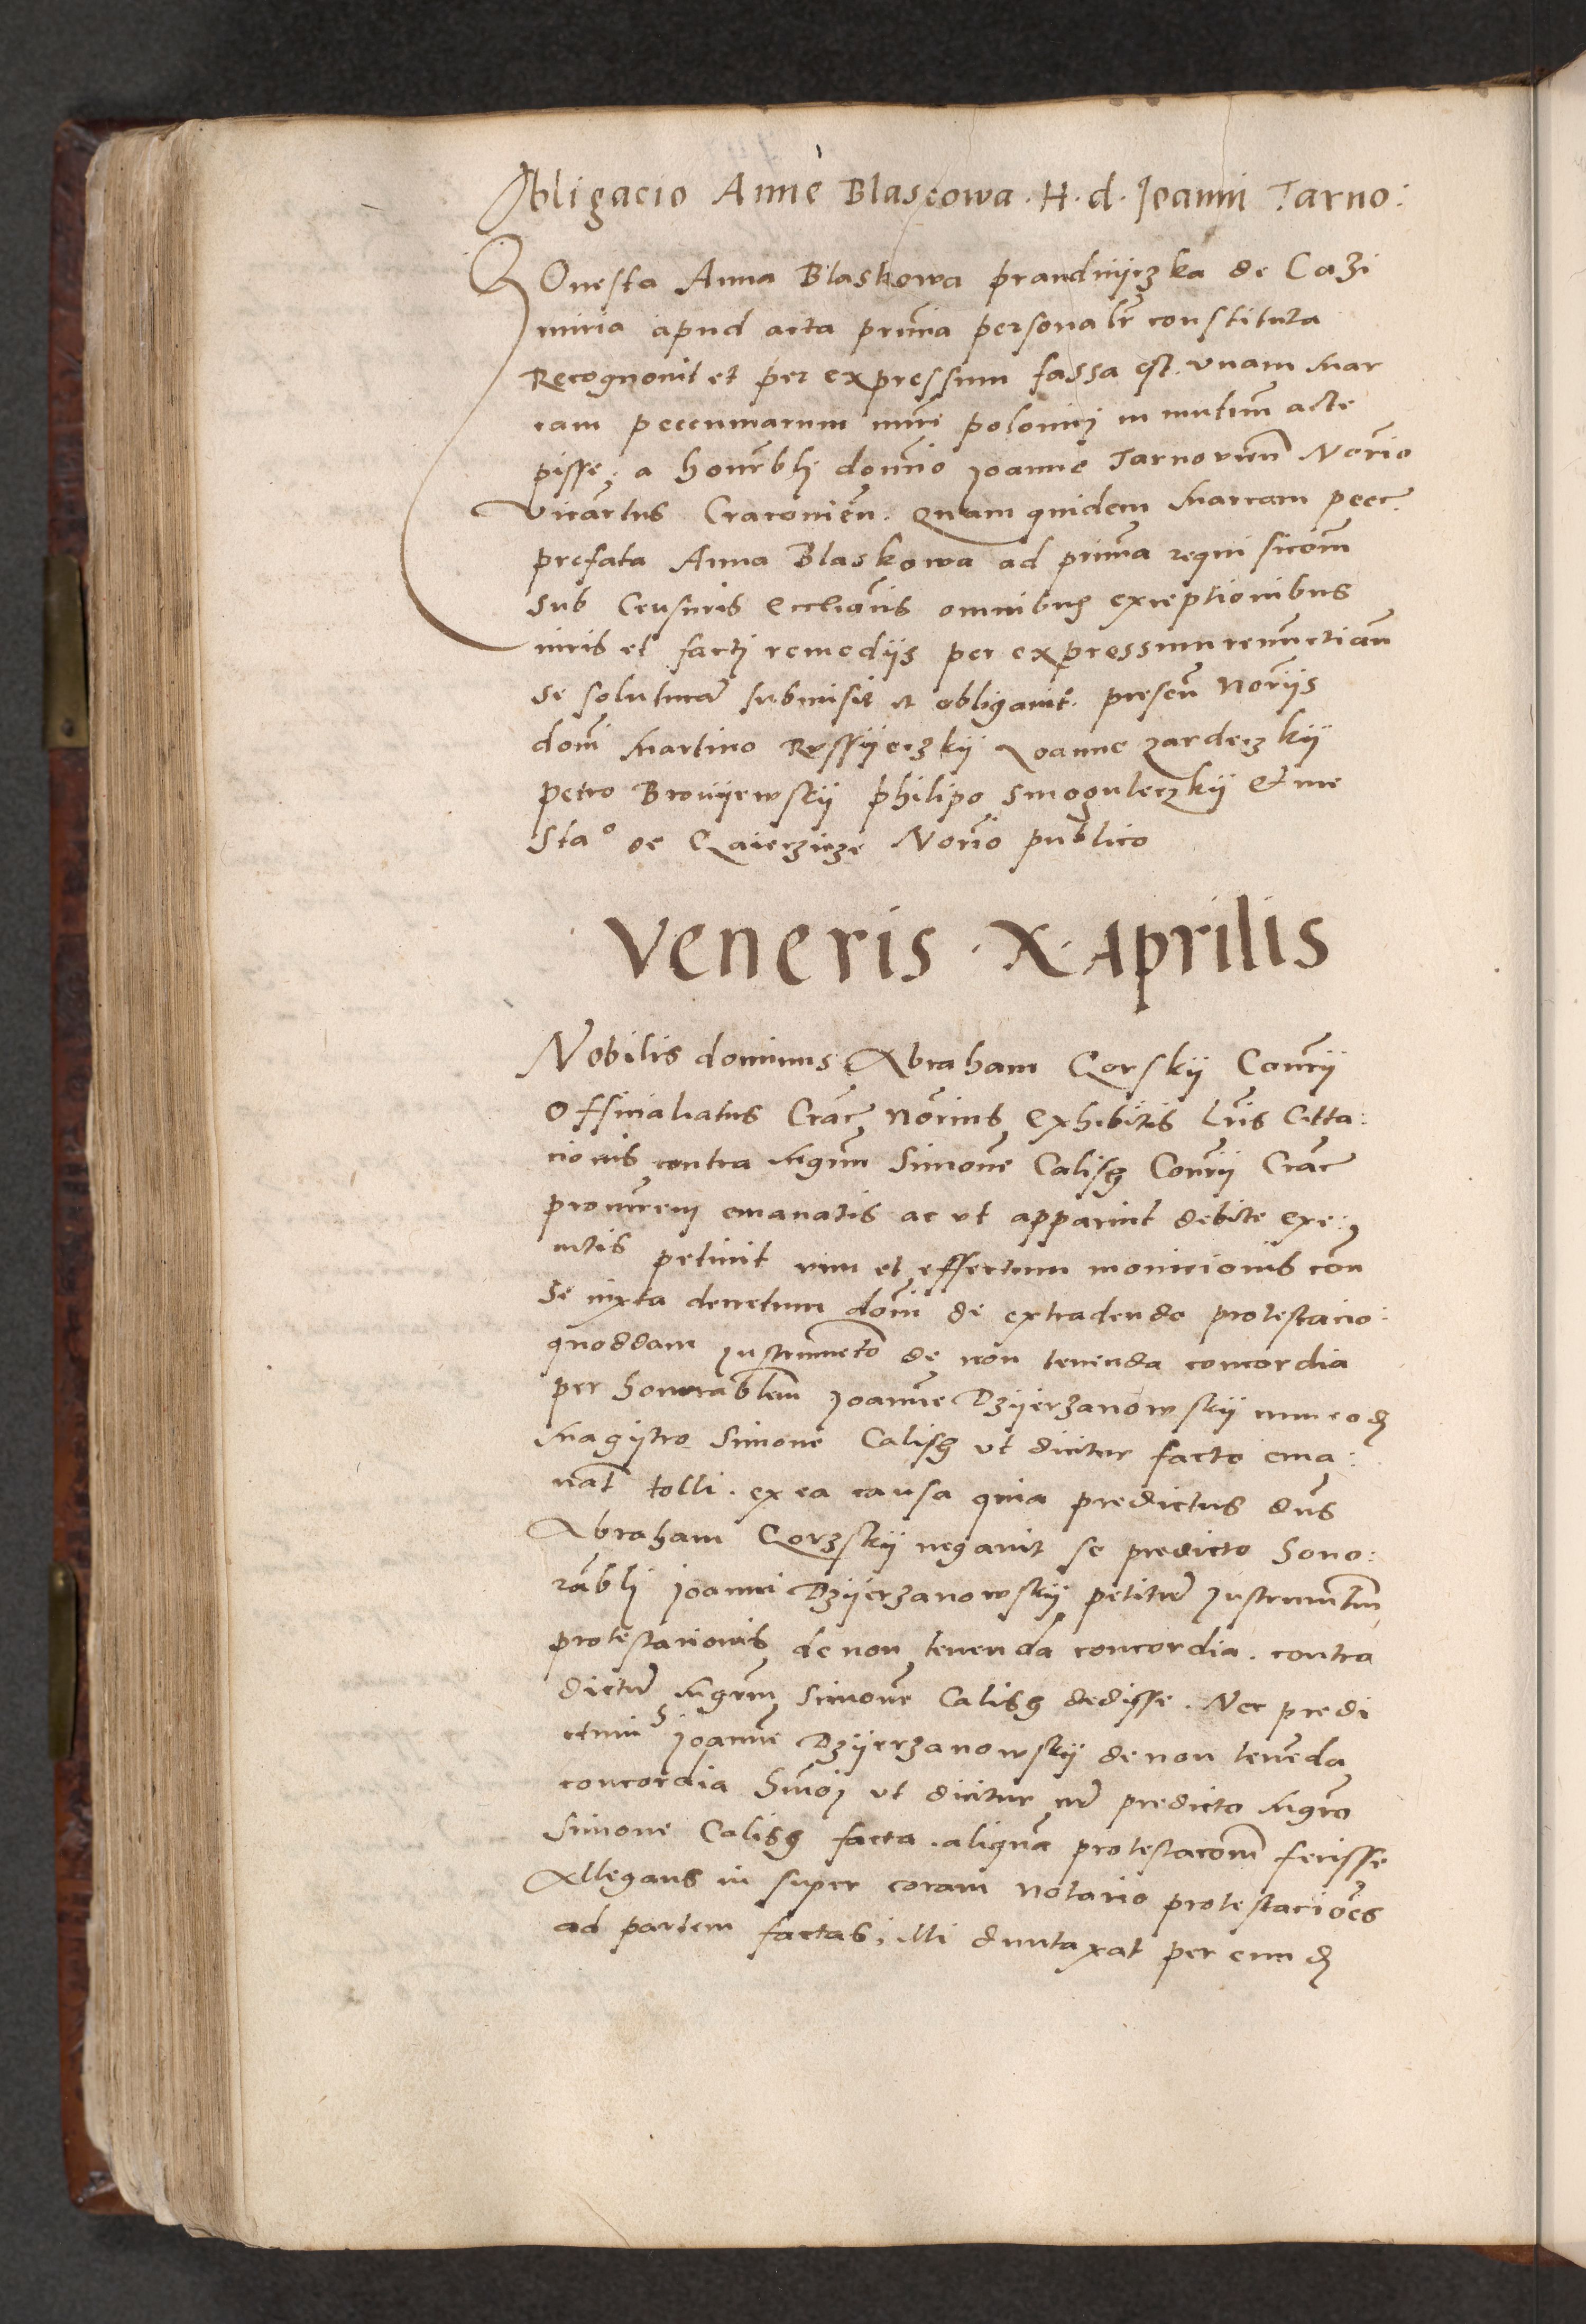 Obligacio Anne Blascowa . H . d . Joanni Tarno :
HOnesta Anna Blaskowa prandnijczka de Cazi
miria apud acta prñcia personalr̃ constituta
Recognovit et per expressum fassa est . vnam Mar
cam peccuniarum nũri polonici in mutuũ acce
pisse, a honorabli domĩo Joanne Tarnovieñ Norĩo
vicariatus Cracovieñ . Quam quidem Marcam pecc
prefata Anna Blaskowa ad primã requisicoñm
sub Censuris Eccliãcis omnibus exceptionibus
iuris et facti remedijs per expressum renuñctiañ
se soluturã submisit et obligavit . preseñ Norĩjs
domĩ Martino Rossijeczkij Joanne zardeczkij
petro Bronijewskij philipo Smoguleczkij et me
Sta° de Gaieczicze Norĩo publico
Veneris . X . Aprilis
Nobilis dominus Abraham Gorskij Consrĩj
Officialatus Crac̃ Norĩus exhibitis lrĩs Citta :
cionis contra Mgrũm Simoneᷠ Calisz Consrĩj Crac̃
procuratorem emanatis ac vt apparuit debite exe :
cutis petiuit vim et effectum monicionis coñ
se iuxta decretum domĩ de extradendo protestacio :
quoddam Instrumeñto de non tenenda concordia
per honorablem Joanneᷠ Dzijerzanowskij cum eodẽ
Magistro Simone Calisz vt dicitur facto ema :
nat̃ tolli . ex ea causa quia predictus dñs
Abraham Gorzskij negavit se predicto hono :
rabli Joanni Dzijerzanowskij petitũ Instrumentũm
protestacionis de non tenenda concordia . contra
dictũ Mgrũm Simoneᷠ Calisz dedisse . Nec predi
ctum Joanneᷠ Dzijerzanowskij de non teneñda
concordia hmõi vt dicitur cũ predicto Mgrõ
Simone Calisz facta . aliquã protestacoñm fecisse
Allegans in super coram notario protestacioẽs
ad partem factas, illi duntaxat per eundẽ